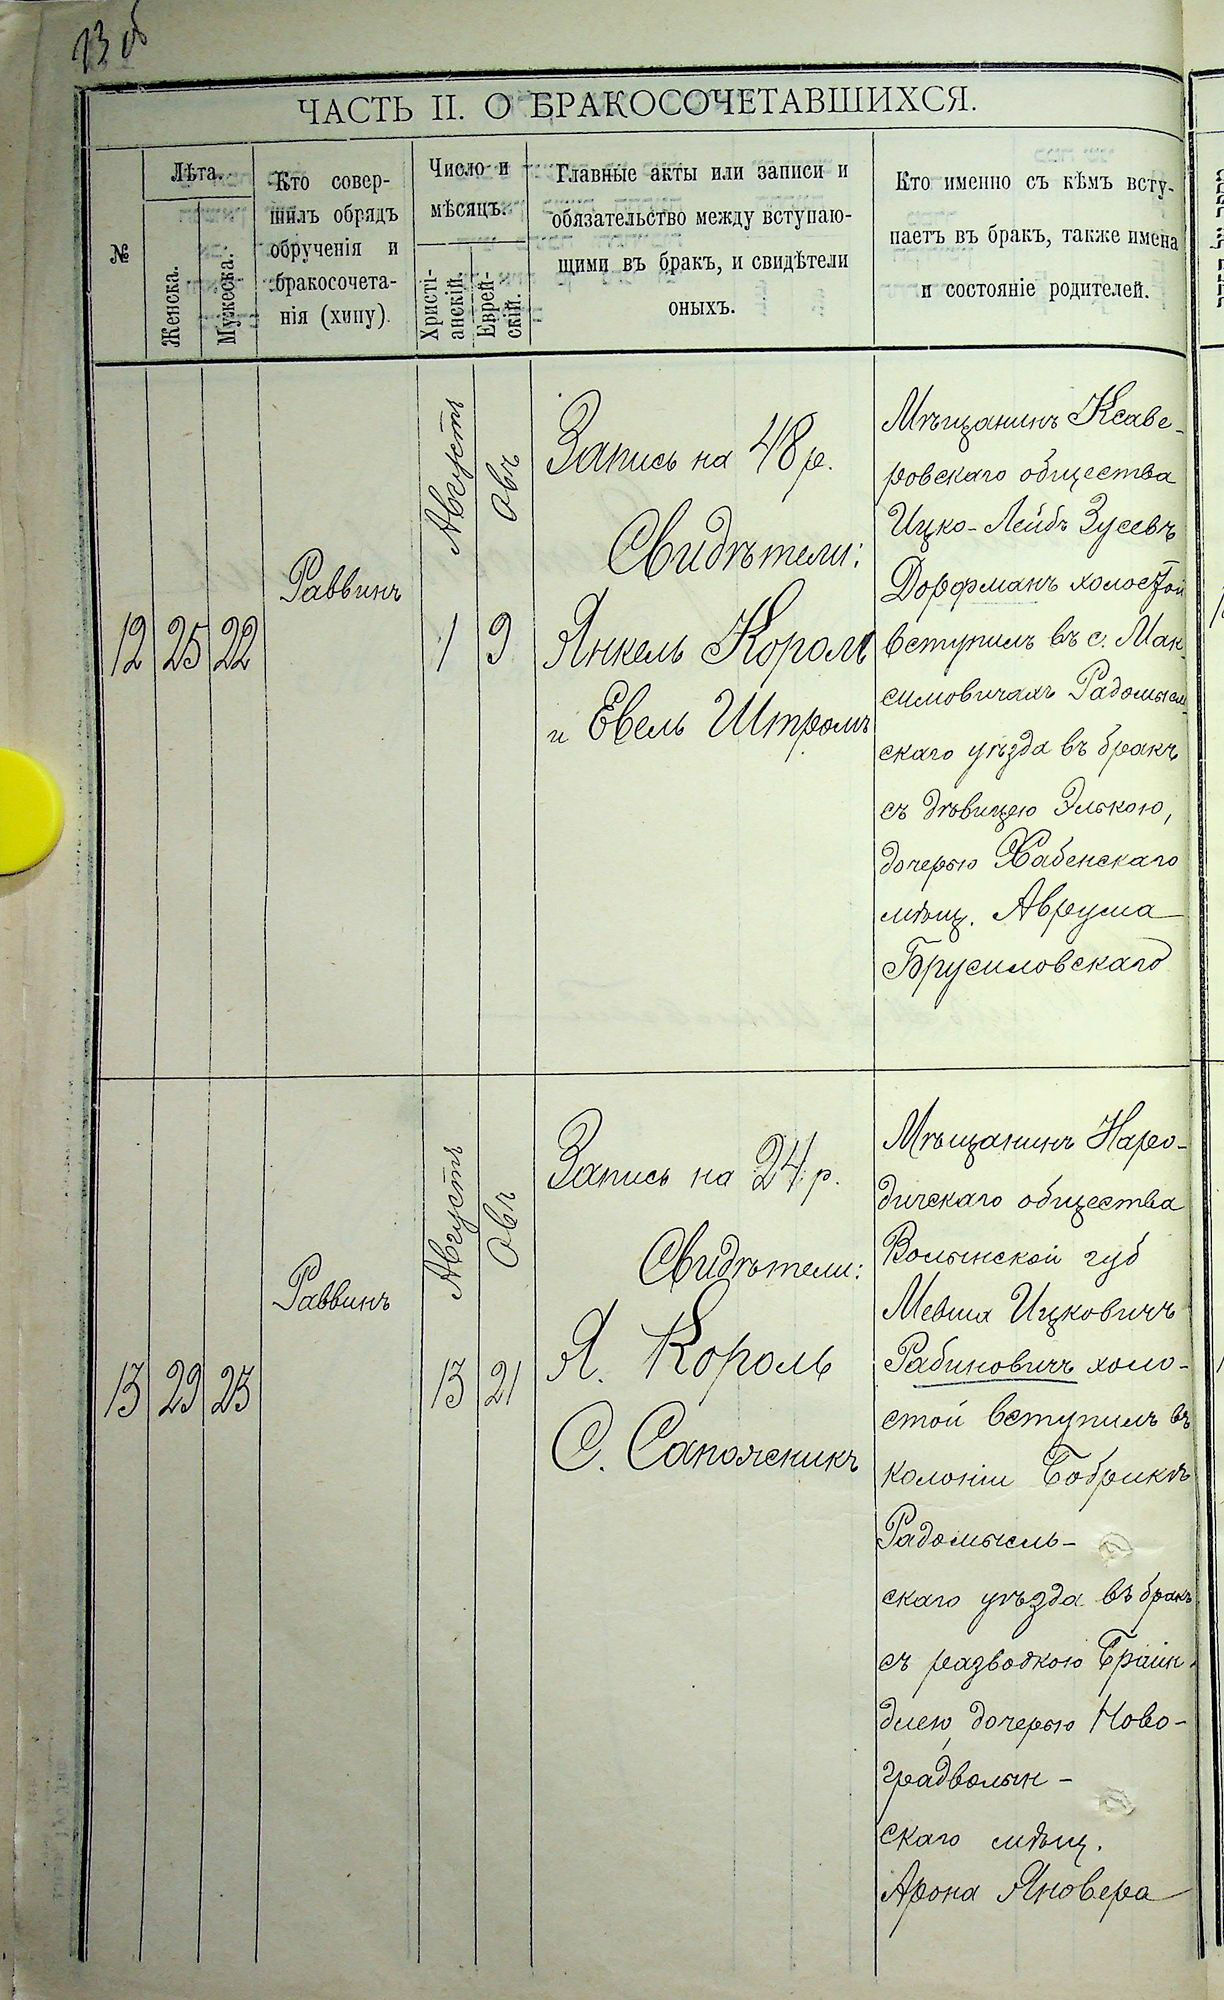 13 об
ЧАСТЬ II. О БРАКОСОЧЕТАВШИХСЯ.
№
Лѣта.
Женска.
Мужеска.
Кто совер-
шилъ обрядъ
обрученія и
бракосочета-
нія (хипу).
Число и
мѣсяцъ.
Христі-
анскій.
Еврей-
скій.
Главные акты или записи и
обязательство между вступаю-
щими въ бракъ, и свидѣтели
оныхъ.
Кто именно съ кѣмъ всту-
паетъ въ бракъ, также имена
и состояніе родителей.
12
25
22
Раввинъ
Августъ
1
Овъ
9
Запись на 48 р.
Свидѣтели:
Янкель Король
и Евель Штромъ
Мѣщанинъ Ксаве-
ровскаго общества
Ицко-Лейбъ Зусевъ
Дорфманъ холостой
вступилъ въ с. Мак-
симовичахъ Радомысл-
скаго уѣзда въ бракъ
съ дѣвицею Элькою,
дочерью Хабенскаго
мѣщ. Аврума
Брусиловскаго
13
29
25
Раввинъ
Августъ
13
Овъ
21
Запись на 24 р.
Свидѣтели:
Я. Король
С. Сапожникъ
Мѣщанинъ Наро-
дичскаго общества
Волынской губ
Мевша Ицковичъ
Рабиновичъ холо-
стой вступилъ въ
колоніи Бобрикъ
Радомысль-
скаго уѣзда въ бракъ
съ разводкою Браин-
длею, дочерью Ново-
градволын-
скаго мѣщ.
Арона Яновера